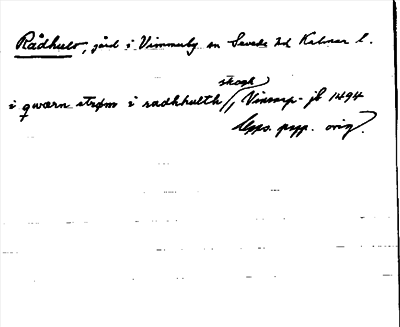 Rådhult, gård i Vimmerby sn Sevede hd Kalmar l.
skogh
i qwærn strøm i radhhulth /, Vinær- jb 1494
Upps. papp. orig.